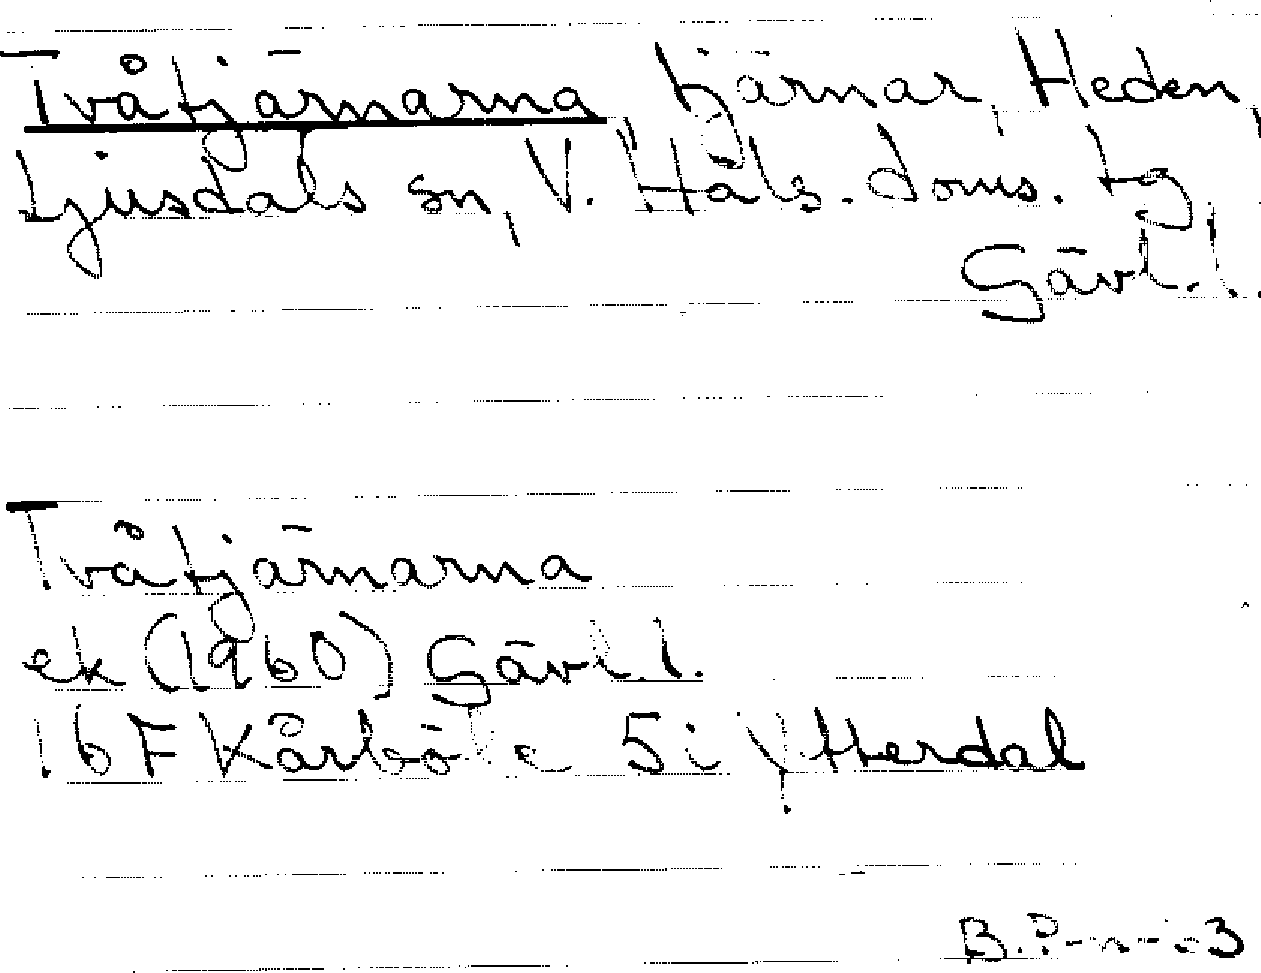 Tvåtjärnarna tjärnar, Heden,
Ljusdals sn, V. Häls. doms. tg
Gävl. l.
Tvåtjärnarna
ek (1960) Gävl. l.
16F Kårböle 5i Ytterdal